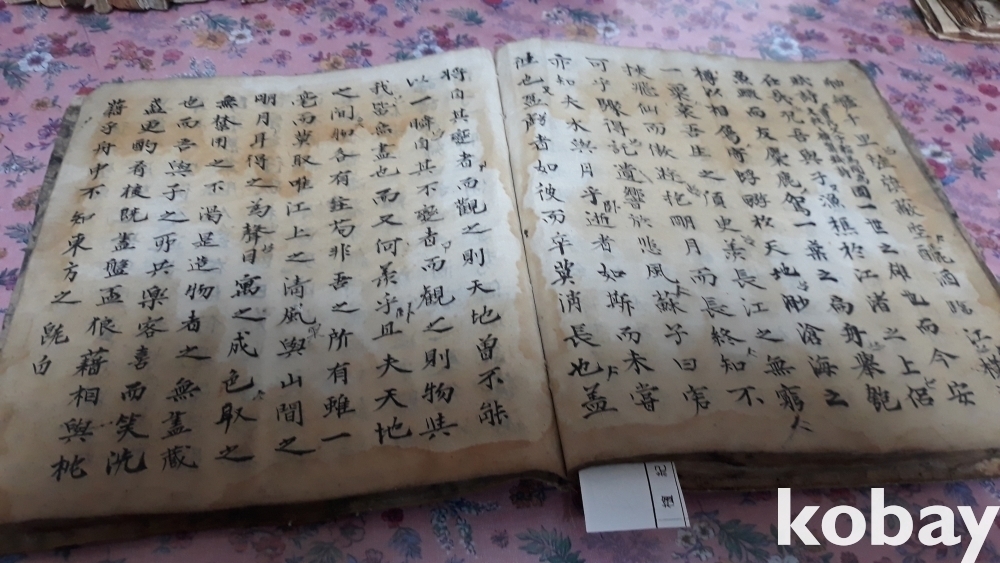 舳艫千里旌旗蔽空釃酒臨江橫
槊賦詩固一世之雄也而今安
在哉况吾與子漁樵於江渚之上侶
魚鰕而友麋鹿駕一葉之扁舟擧匏
樽以相屬寄蜉蝣於天地渺滄海之
一粟哀吾生之須臾羨長江之無窮
挾飛仙而遨遊抱明月而長終知不
可乎驟得託遺響於悲風蘇子曰客
亦知夫水與月乎逝者如斯而未嘗
往也盈虛者如彼而卒莫消長也盖
將自其變者而觀之則天地曾不能
以一瞬自其不變者而觀之則物與
我皆無盡也而又何羨乎且夫天地
之間物各有主苟非吾之所有雖一
毫而莫取唯江上之淸風與山間之
明月耳得之為聲目寓之成色取之
無禁用之不渴是造物者之無盡藏
也而吾與子之所共樂客喜而笑洗
盞更酌肴核旣盡盤盃狼藉相與枕
藉乎舟中不知東方之旣白
kobay